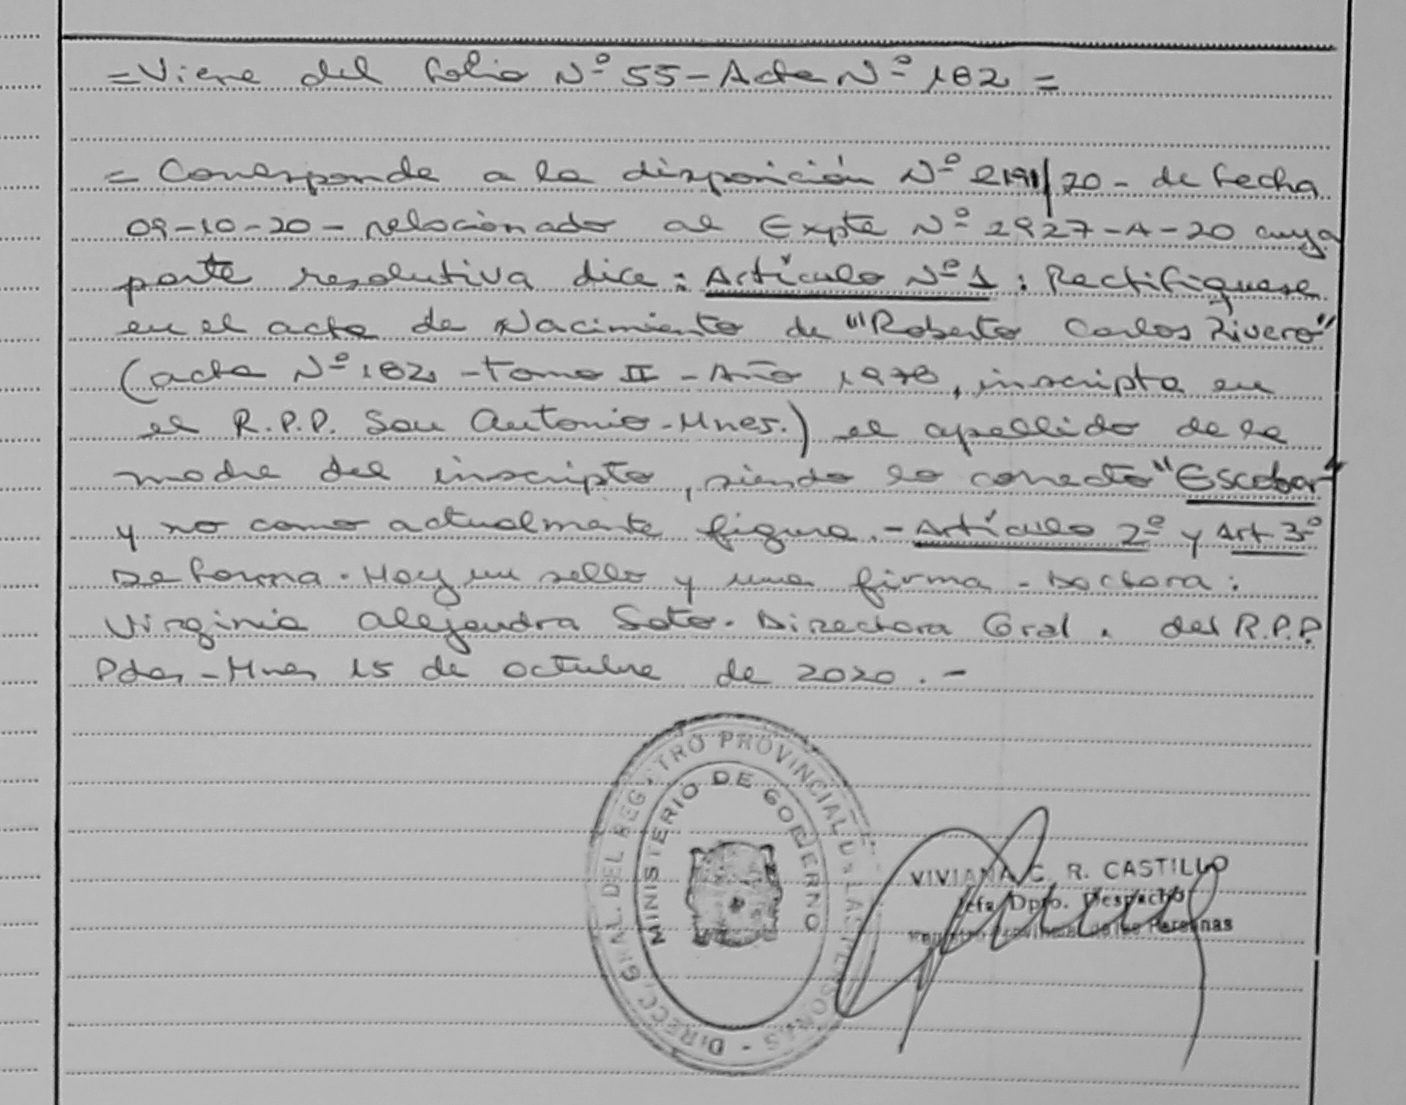 =Viene del folio Nº 55-Acta Nº 182 =
= Corresponde a la disposición Nº 2191/20- de fecha
09-10-20- relacionado al Expte Nº 2927-A-20 cuya
parte resolutiva dice: Artículo Nº1: Rectifíquese
en el acta de Nacimiento de "Roberto Carlos Rivero"
(acta Nº 182 -Tomo II -Año 1978, inscripta en
el R.P.P. San Antonio-Mnes.) el apellido de la
madre del inscripto, siendo lo correcto "Escobar"
y no como actualmente figura.-Artículo 2º y Art 3º
De forma. Hay un sello y una firma - Doctora:
Virginia Alejandra Soto. Directora Gral. del R.P.P.
Pdas-Mnes 15 de octubre de 2020.-
DIRECC. GRAL. DEL REGISTRO PROVINCIAL DE LAS PERSONAS -
MINISTERIO DE GOBIERNO
VIVIANA C. R. CASTILLO
Jefa Dpto. Despacho
Registro Provincial de las Personas